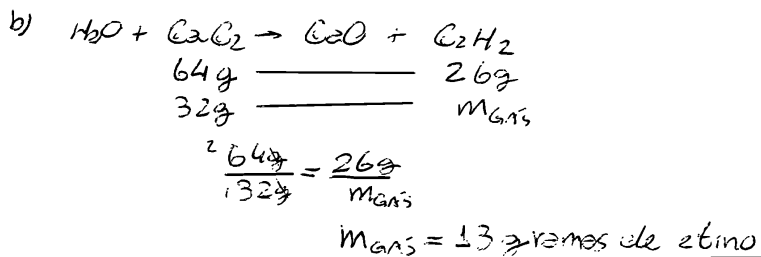 b) H2O + CaC2 → CaO + C2H2
64g —— 26g
32g —— mGÁS
2 64g / 1 32g = 26g / mGÁS
mGÁS = 13 gramas de etino